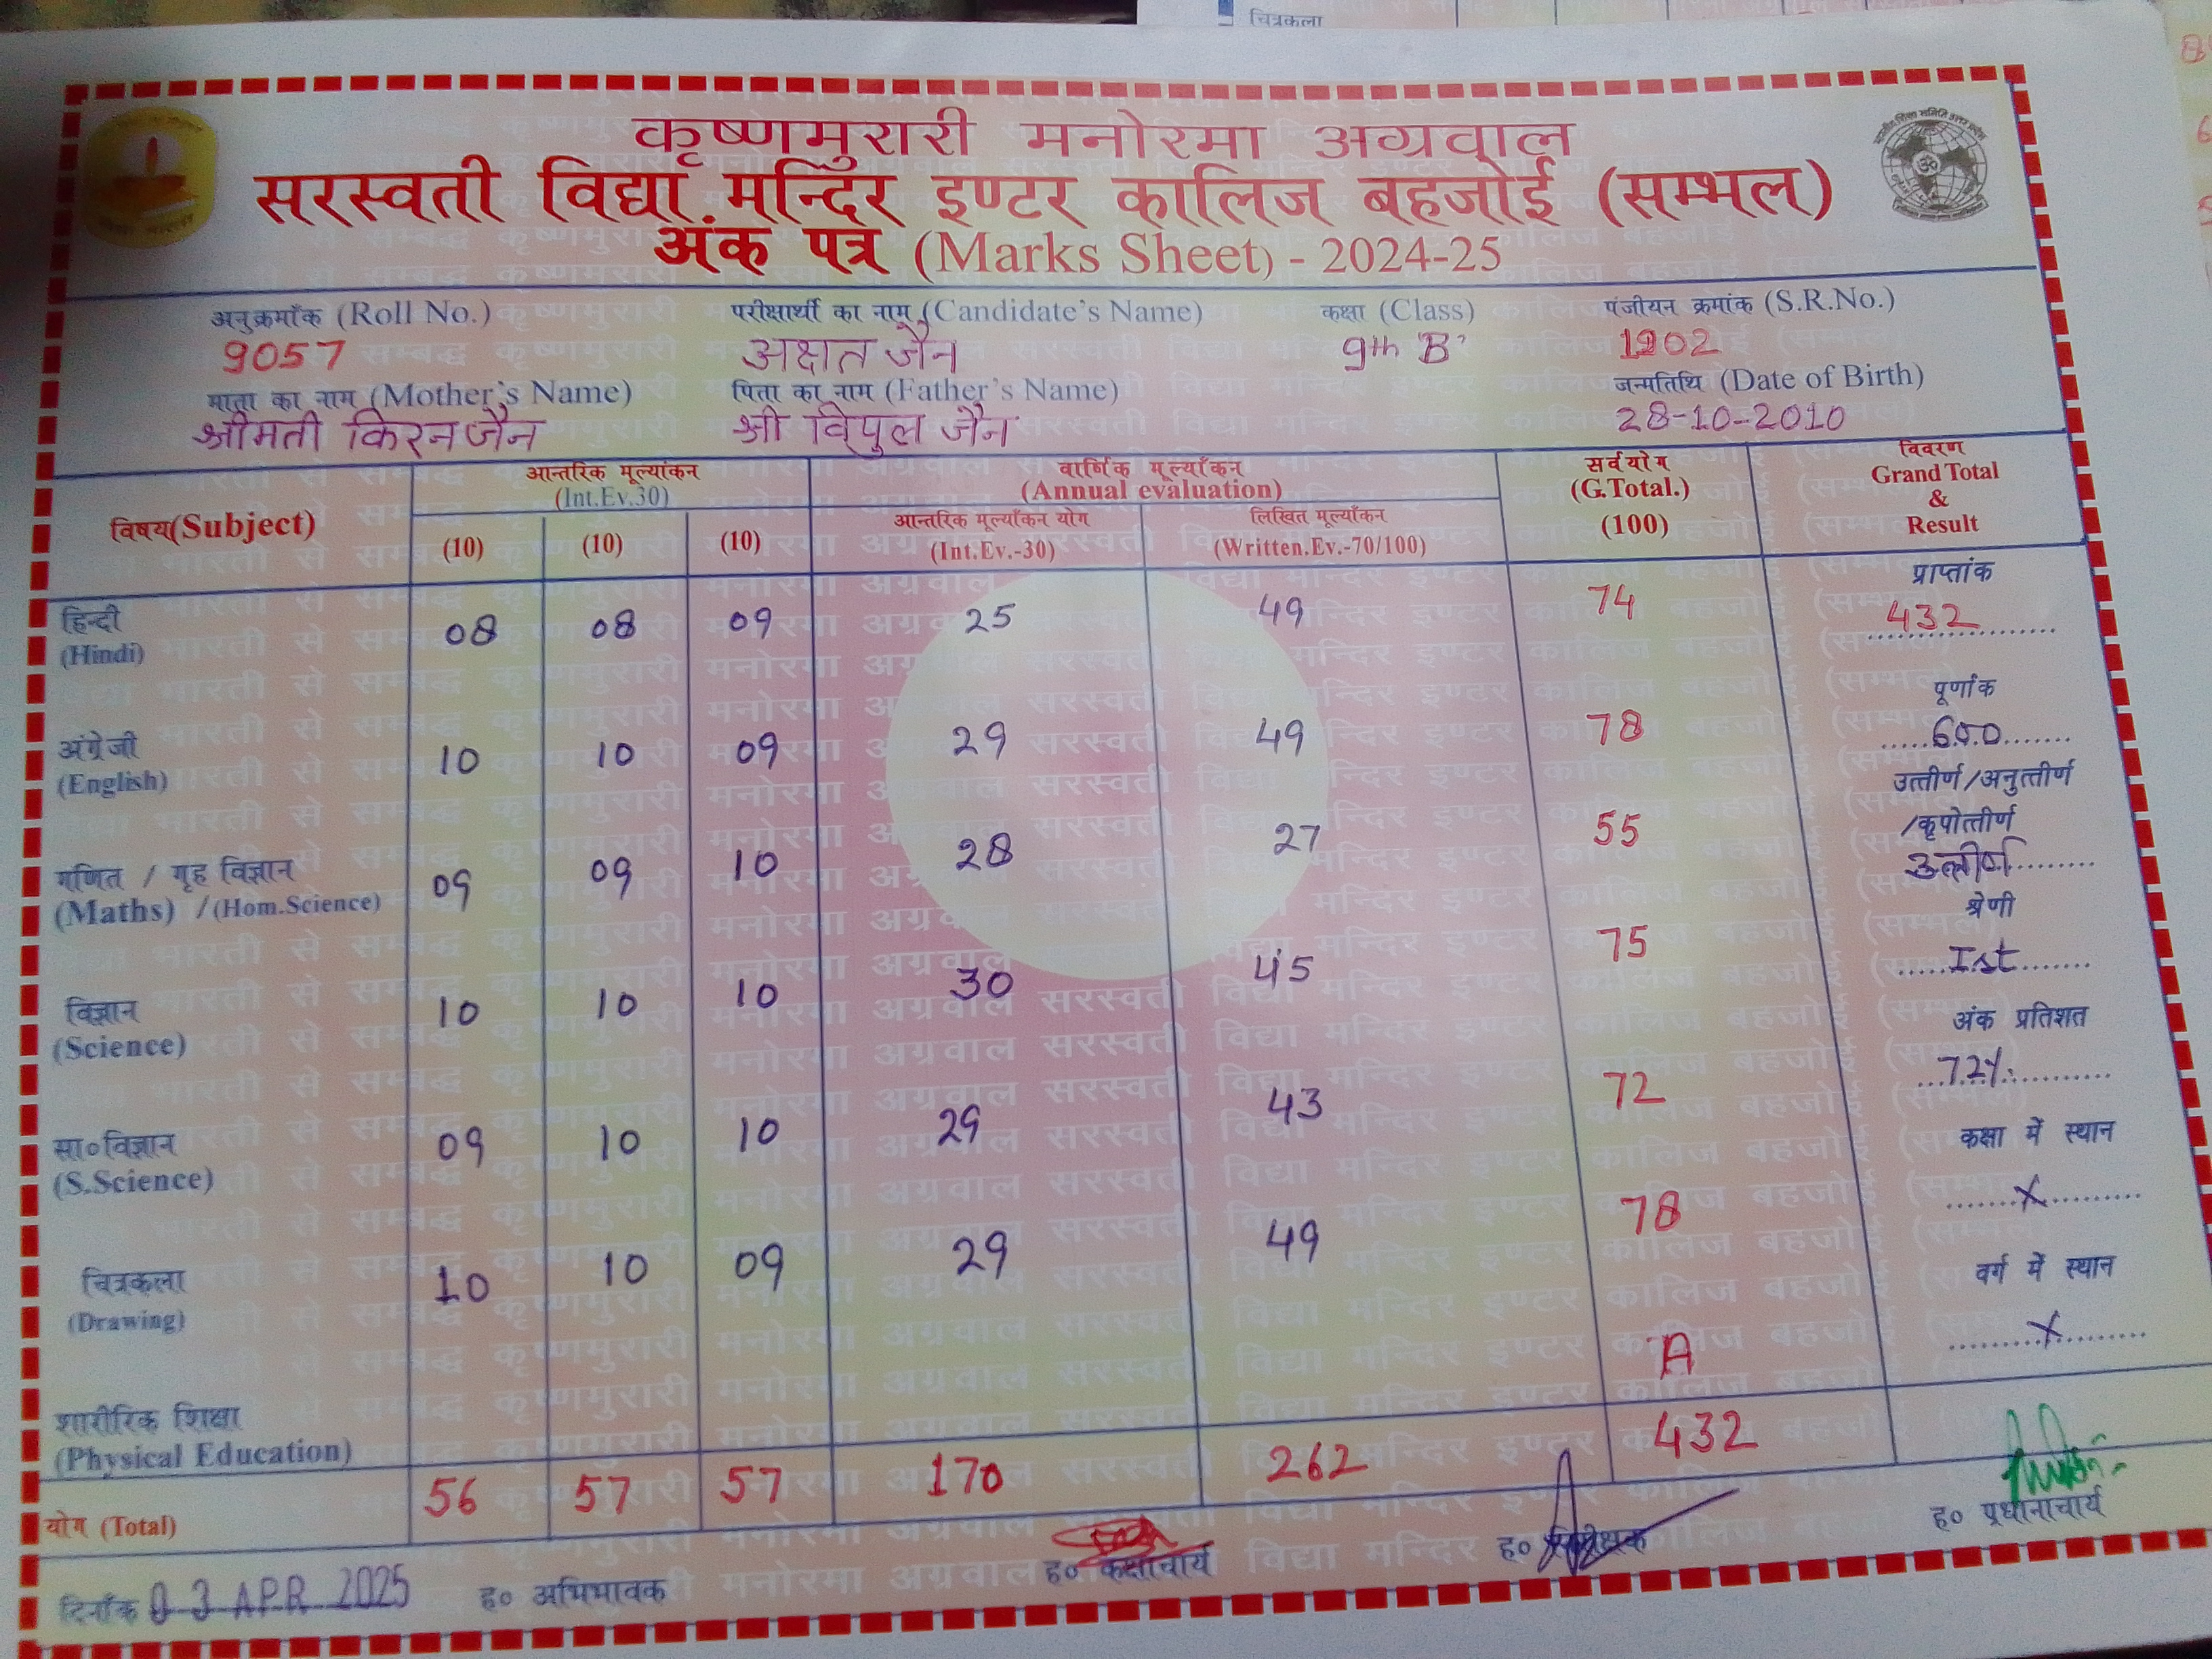 चित्रकला
कृष्णमुरारी मनोरमा अग्रवाल
सरस्वती विद्या मन्दिर इण्टर कालिज बहजोई (सम्भल)
अंक पत्र (Marks Sheet) - 2024-25
अनुक्रमाँक (Roll No.) परीक्षार्थी का नाम (Candidate's Name) कक्षा (Class) पंजीयन क्रमांक (S.R.No.)
9057 अक्षत जैन 9th 'B' 1902
माता का नाम (Mother's Name) पिता का नाम (Father's Name) जन्मतिथि (Date of Birth)
श्रीमती किरन जैन श्री विपुल जैन 28-10-2010
विषय(Subject) आन्तरिक मूल्यांकन (Int.Ev.30) वार्षिक मूल्याँकन (Annual evaluation) सर्वयोग (G.Total.) (100) विवरण Grand Total & Result
(10) (10) (10) आन्तरिक मूल्याँकन योग (Int.Ev.-30) लिखित मूल्याँकन (Written.Ev.-70/100)
हिन्दी (Hindi) 08 08 09 25 49 74 प्राप्तांक 432
अंग्रेजी (English) 10 10 09 29 49 78 पूर्णांक 600
गणित / गृह विज्ञान (Maths) /(Hom.Science) 09 09 10 28 27 55 उत्तीर्ण/अनुत्तीर्ण /कृपोत्तीर्ण उत्तीर्ण
विज्ञान (Science) 10 10 10 30 45 75 श्रेणी Ist
सा०विज्ञान (S.Science) 09 10 10 29 43 72 अंक प्रतिशत 72%
चित्रकला (Drawing) 10 10 09 29 49 78 कक्षा में स्थान x
शारीरिक शिक्षा (Physical Education) A वर्ग में स्थान x
योग (Total) 56 57 57 170 262 432
दिनाँक 03 APR 2025 ह० अभिभावक ह० कक्षाचार्य ह० ह० प्रधानाचार्य